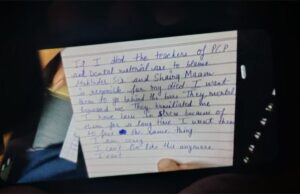 If I died the teachers of PCP
and Dental material are to blame
Sir and Maam
is responsible for my died I want
them to go behind the bars They mental
me They humiliated me
I have been in stress because of
them for a long time I want them
to face the same thing
I am sorry
I can't live like this anymore
I can't